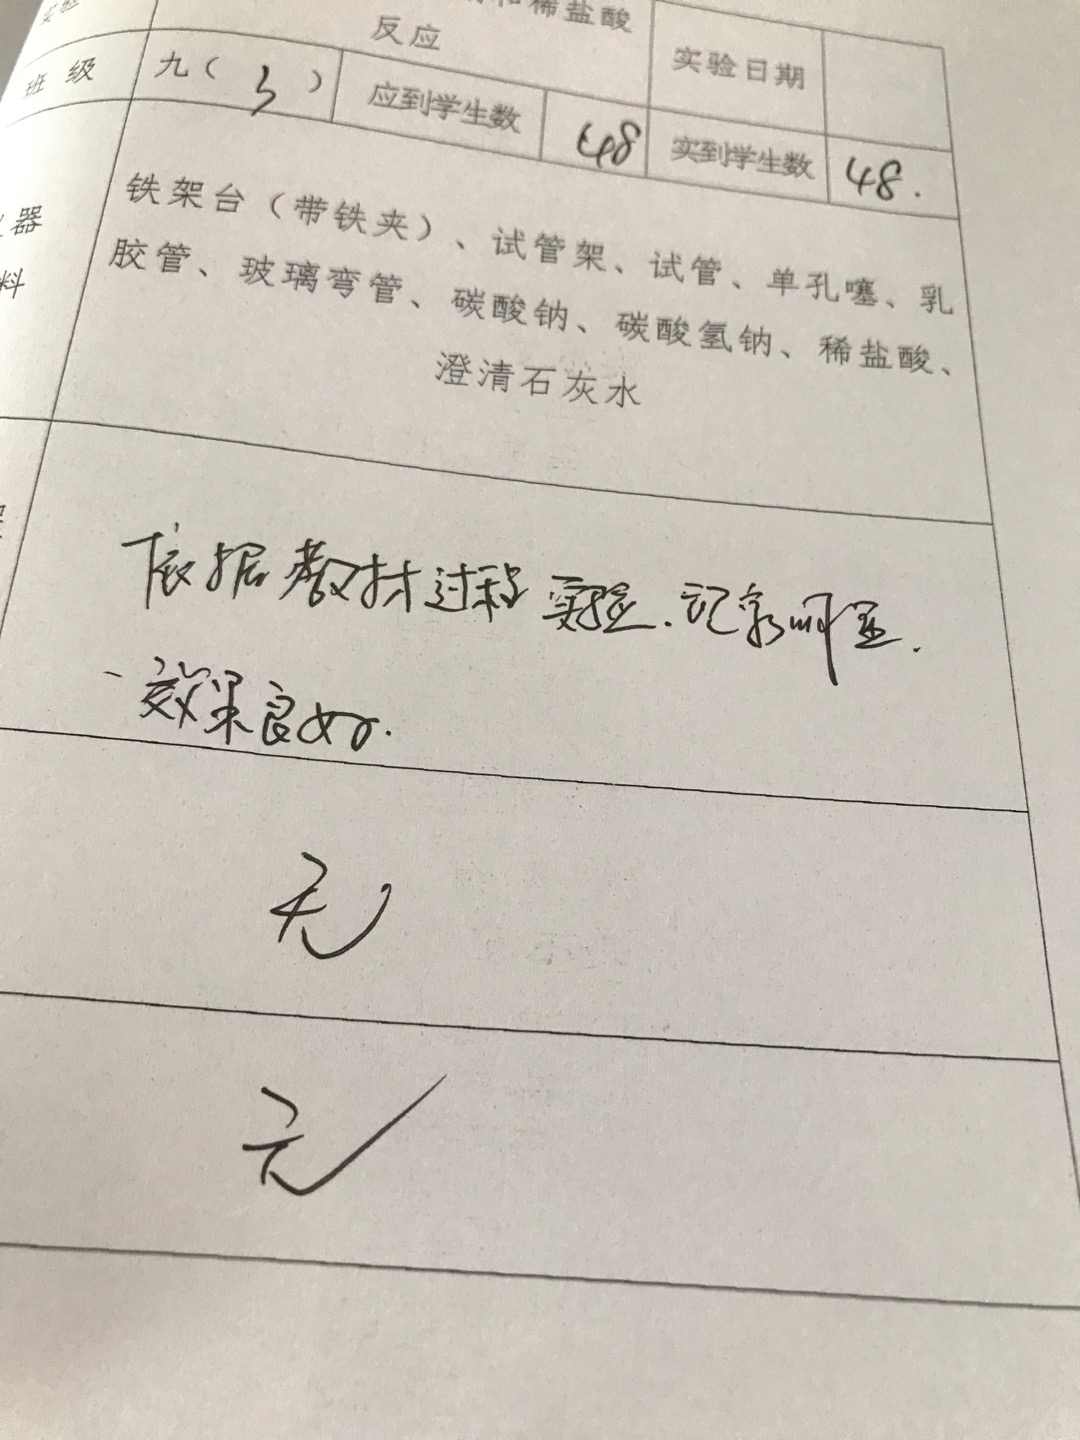 实验
和稀盐酸
反应
实验日期
班 级
九（ 3 ）
应到学生数
48
实到学生数
48.
器
料
铁架台（带铁夹）、试管架、试管、单孔塞、乳
胶管、玻璃弯管、碳酸钠、碳酸氢钠、稀盐酸、
澄清石灰水
依据教材过程实验.记象明显.
效果良好.
无
无